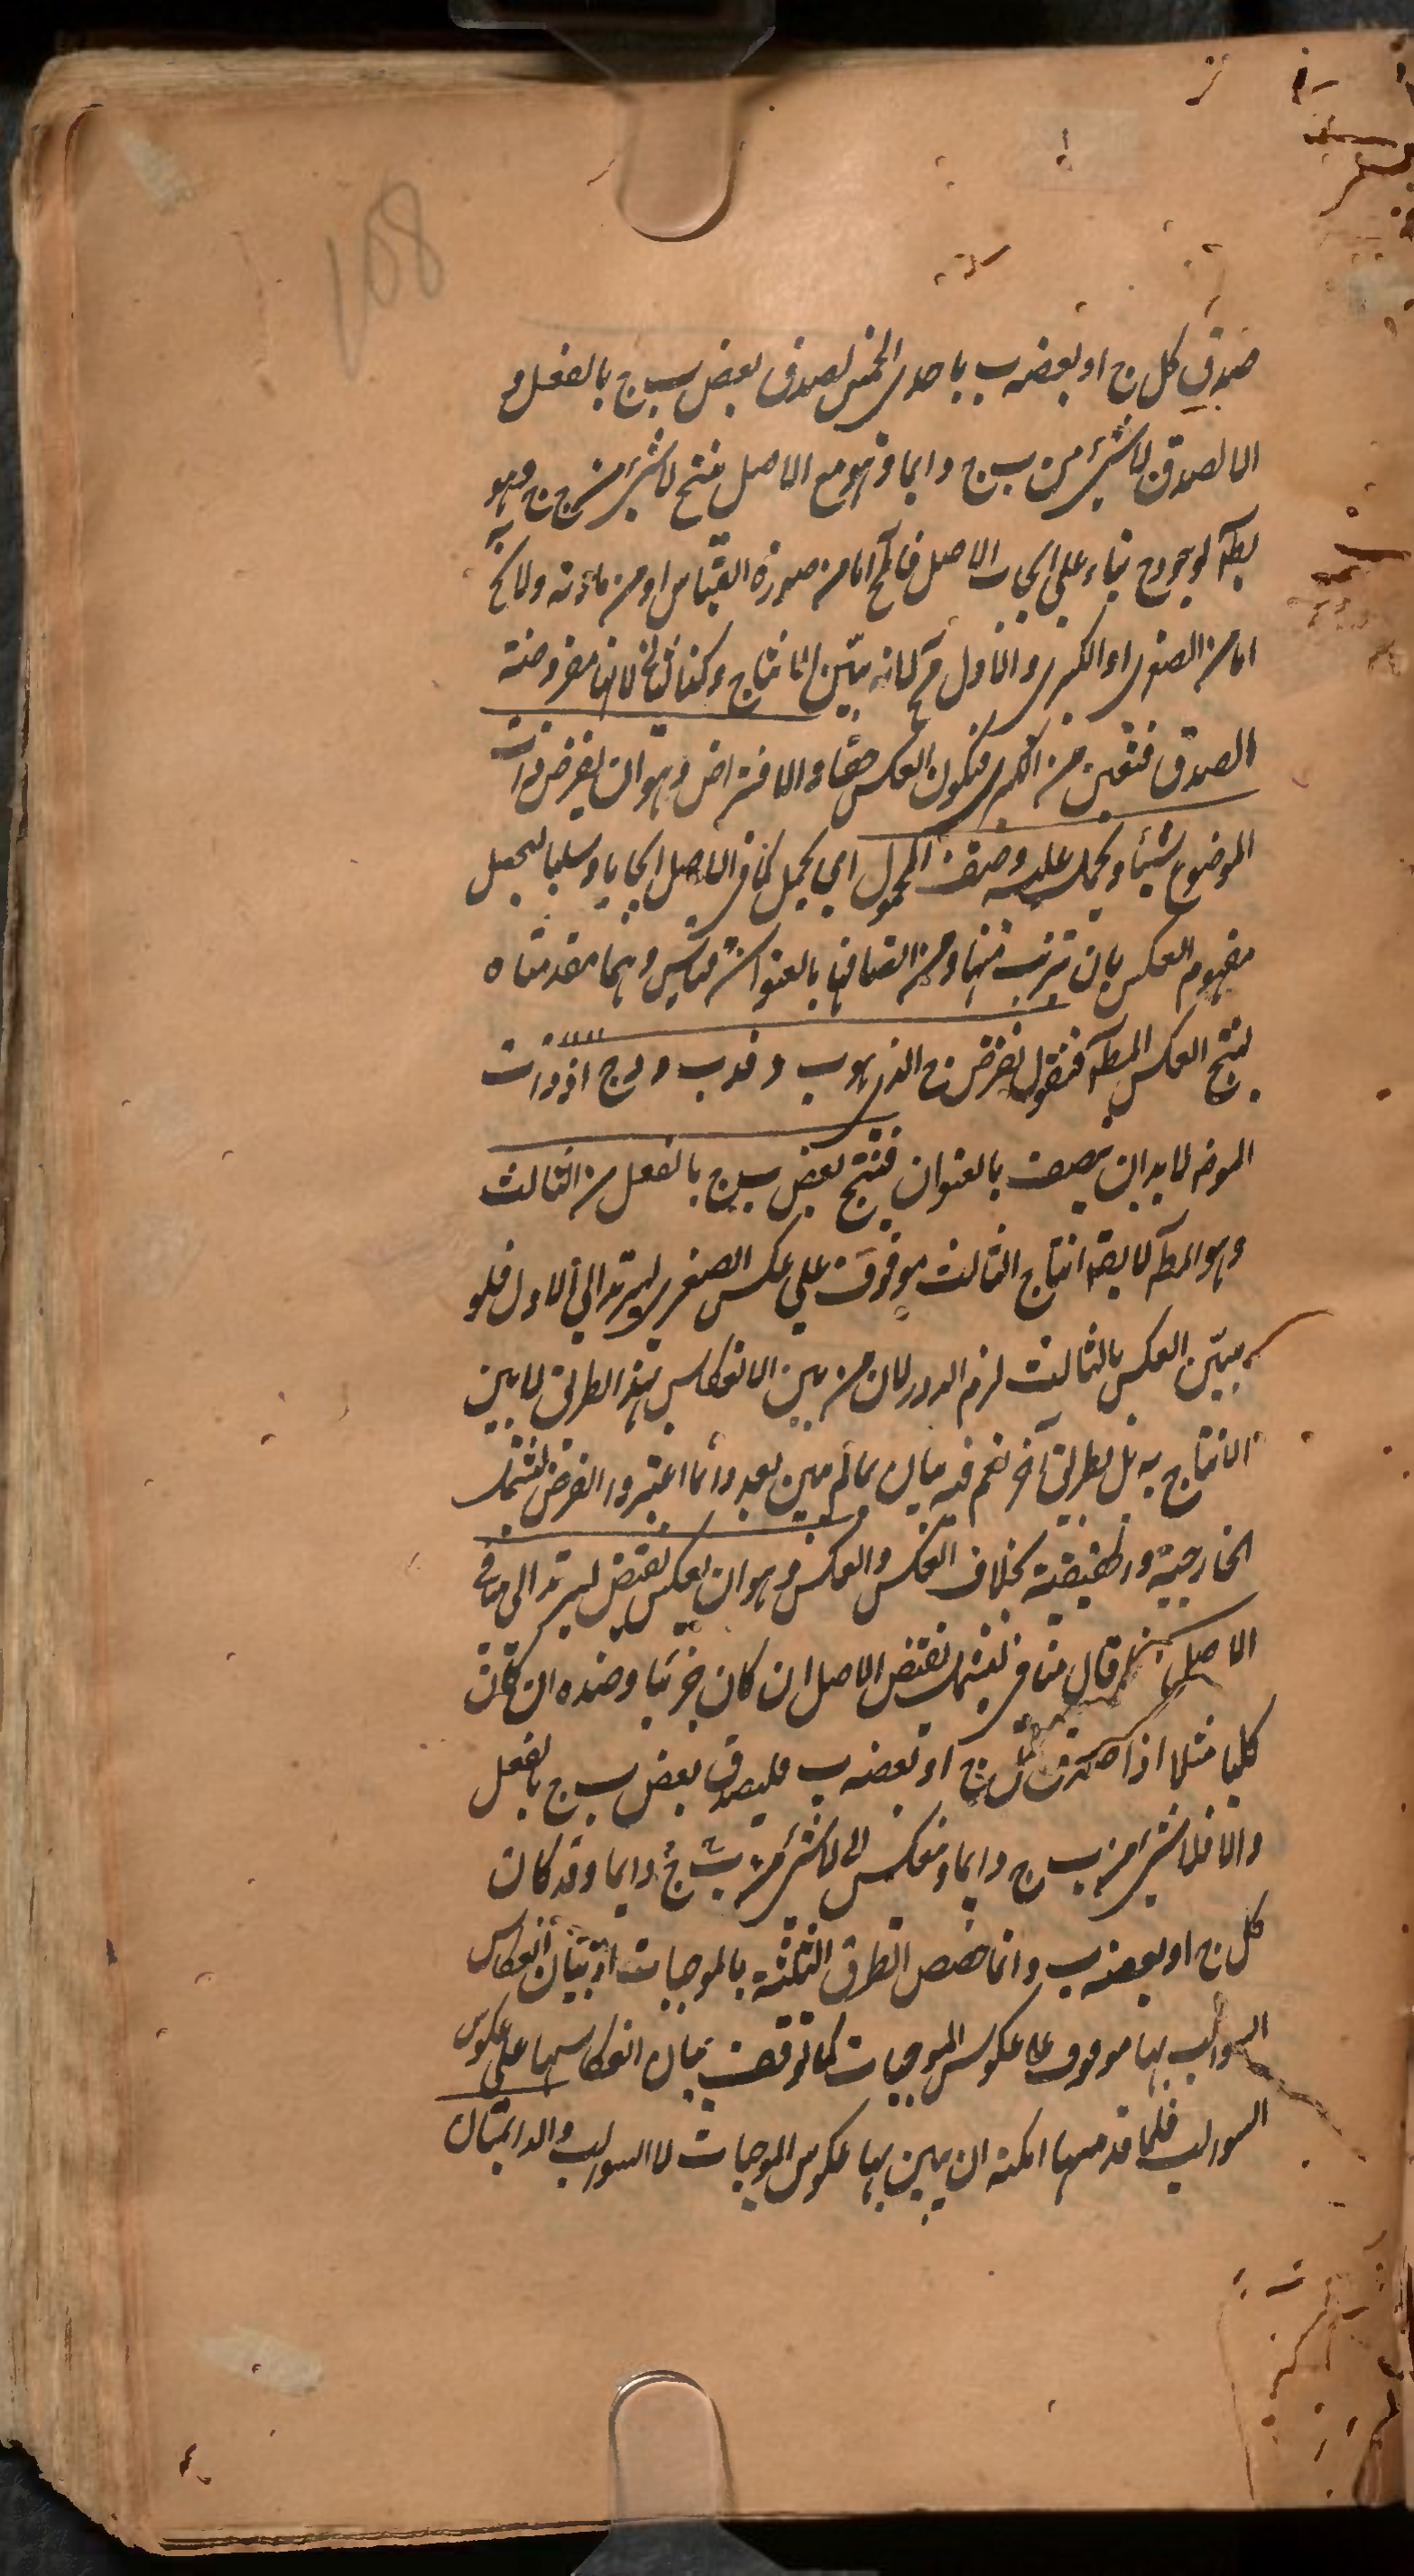 108
صدق كل ج او بعضه ب باحدى الخمس لصدق بعض ب ج بالفعل و
الا لصدق لا شئ من ب ج دايما وهو مع الاصل ينتج لا شئ من ج ج وهو
بط لوجود ج بناء على ايجاب الاصل فالخ اما من صورة القياس او من مادته ولا يخ
اما من الصغرى او الكبرى والاول مح لانه بين الانتاج وكذا الثانى لانها مفروضة
الصدق فتعين من الكبرى فيكون العكس حقا والافتراض وهو ان يفرض ذات
الموضوع شيئا ويحمل عليه وصف المحمول اى يحمل كما فى الاصل ايجابا وسلبا ليحصل
مفهوم العكس بان يترتب منها ومن اتصافها بالعنوان قياس وهما مقدمتاه
ينتج العكس المط فنقول نفرض ج الذى هو ب د فد ب و د ج اذ ذات
الموضوع لا بد ان يتصف بالعنوان فينتج بعض ب ج بالفعل من الثالث
وهو المط لا يقال انتاج الثالث موقوف على عكس الصغرى ليرتد الى الاول فلو
بين العكس بالثالث لزم الدور لان من بين الانعكاس بهذا الطريق لا يبين
الانتاج به بل بطريق آخر نعم فيه بيان بما لم يبين بعد وانما اعتبروا الفرض ليشمل
الخارجية والحقيقية بخلاف العكس والعكس وهو ان يعكس نقيض ليرتد الى منافى
الاصل قال منافى ليشمل نقيض الاصل ان كان جزئيا وضده ان كان
كليا مثلا اذا صدق كل ج او بعضه ب فليصدق بعض ب ج بالفعل
والا فلا شئ من ب ج دايما وينعكس الى لا شئ من ج ب دايما وقد كان
كل ج او بعضه ب وانما خصص الطرق الثلثة بالموجبات اذ بيان انعكاس
السوالب بها موقوف على عكوس الموجبات كما توقف بيان انعكاسها على عكوس
السوالب فلما قدمها امكنه ان يبين بها عكوس الموجبات لا السوالب والدايمتان